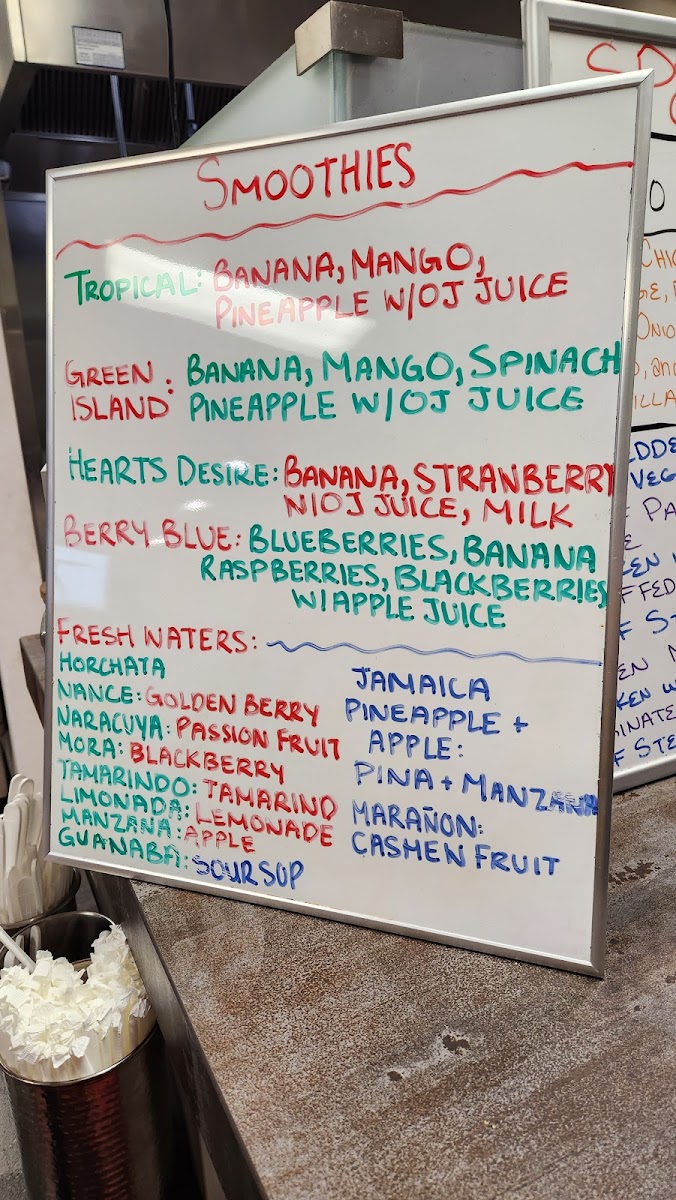 SMOOTHIES
TROPICAL: BANANA, MANGO,
PINEAPPLE W/OJ JUICE
GREEN ISLAND: BANANA, MANGO, SPINACH
PINEAPPLE W/OJ JUICE
HEARTS DESIRE: BANANA, STRANBERRY
N/OJ JUICE, MILK
BERRY BLUE: BLUEBERRIES, BANANA
RASPBERRIES, BLACKBERRIES
W/APPLE JUICE
FRESH WATERS:
HORCHATA
NANCE: GOLDEN BERRY
NARACUYA: PASSION FRUIT
MORA: BLACKBERRY
TAMARINDO: TAMARIND
LIMONADA: LEMONADE
MANZANA: APPLE
GUANABA: SOURSOP
JAMAICA
PINEAPPLE +
APPLE:
PINA + MANZANA
MARAÑON:
CASHEN FRUIT